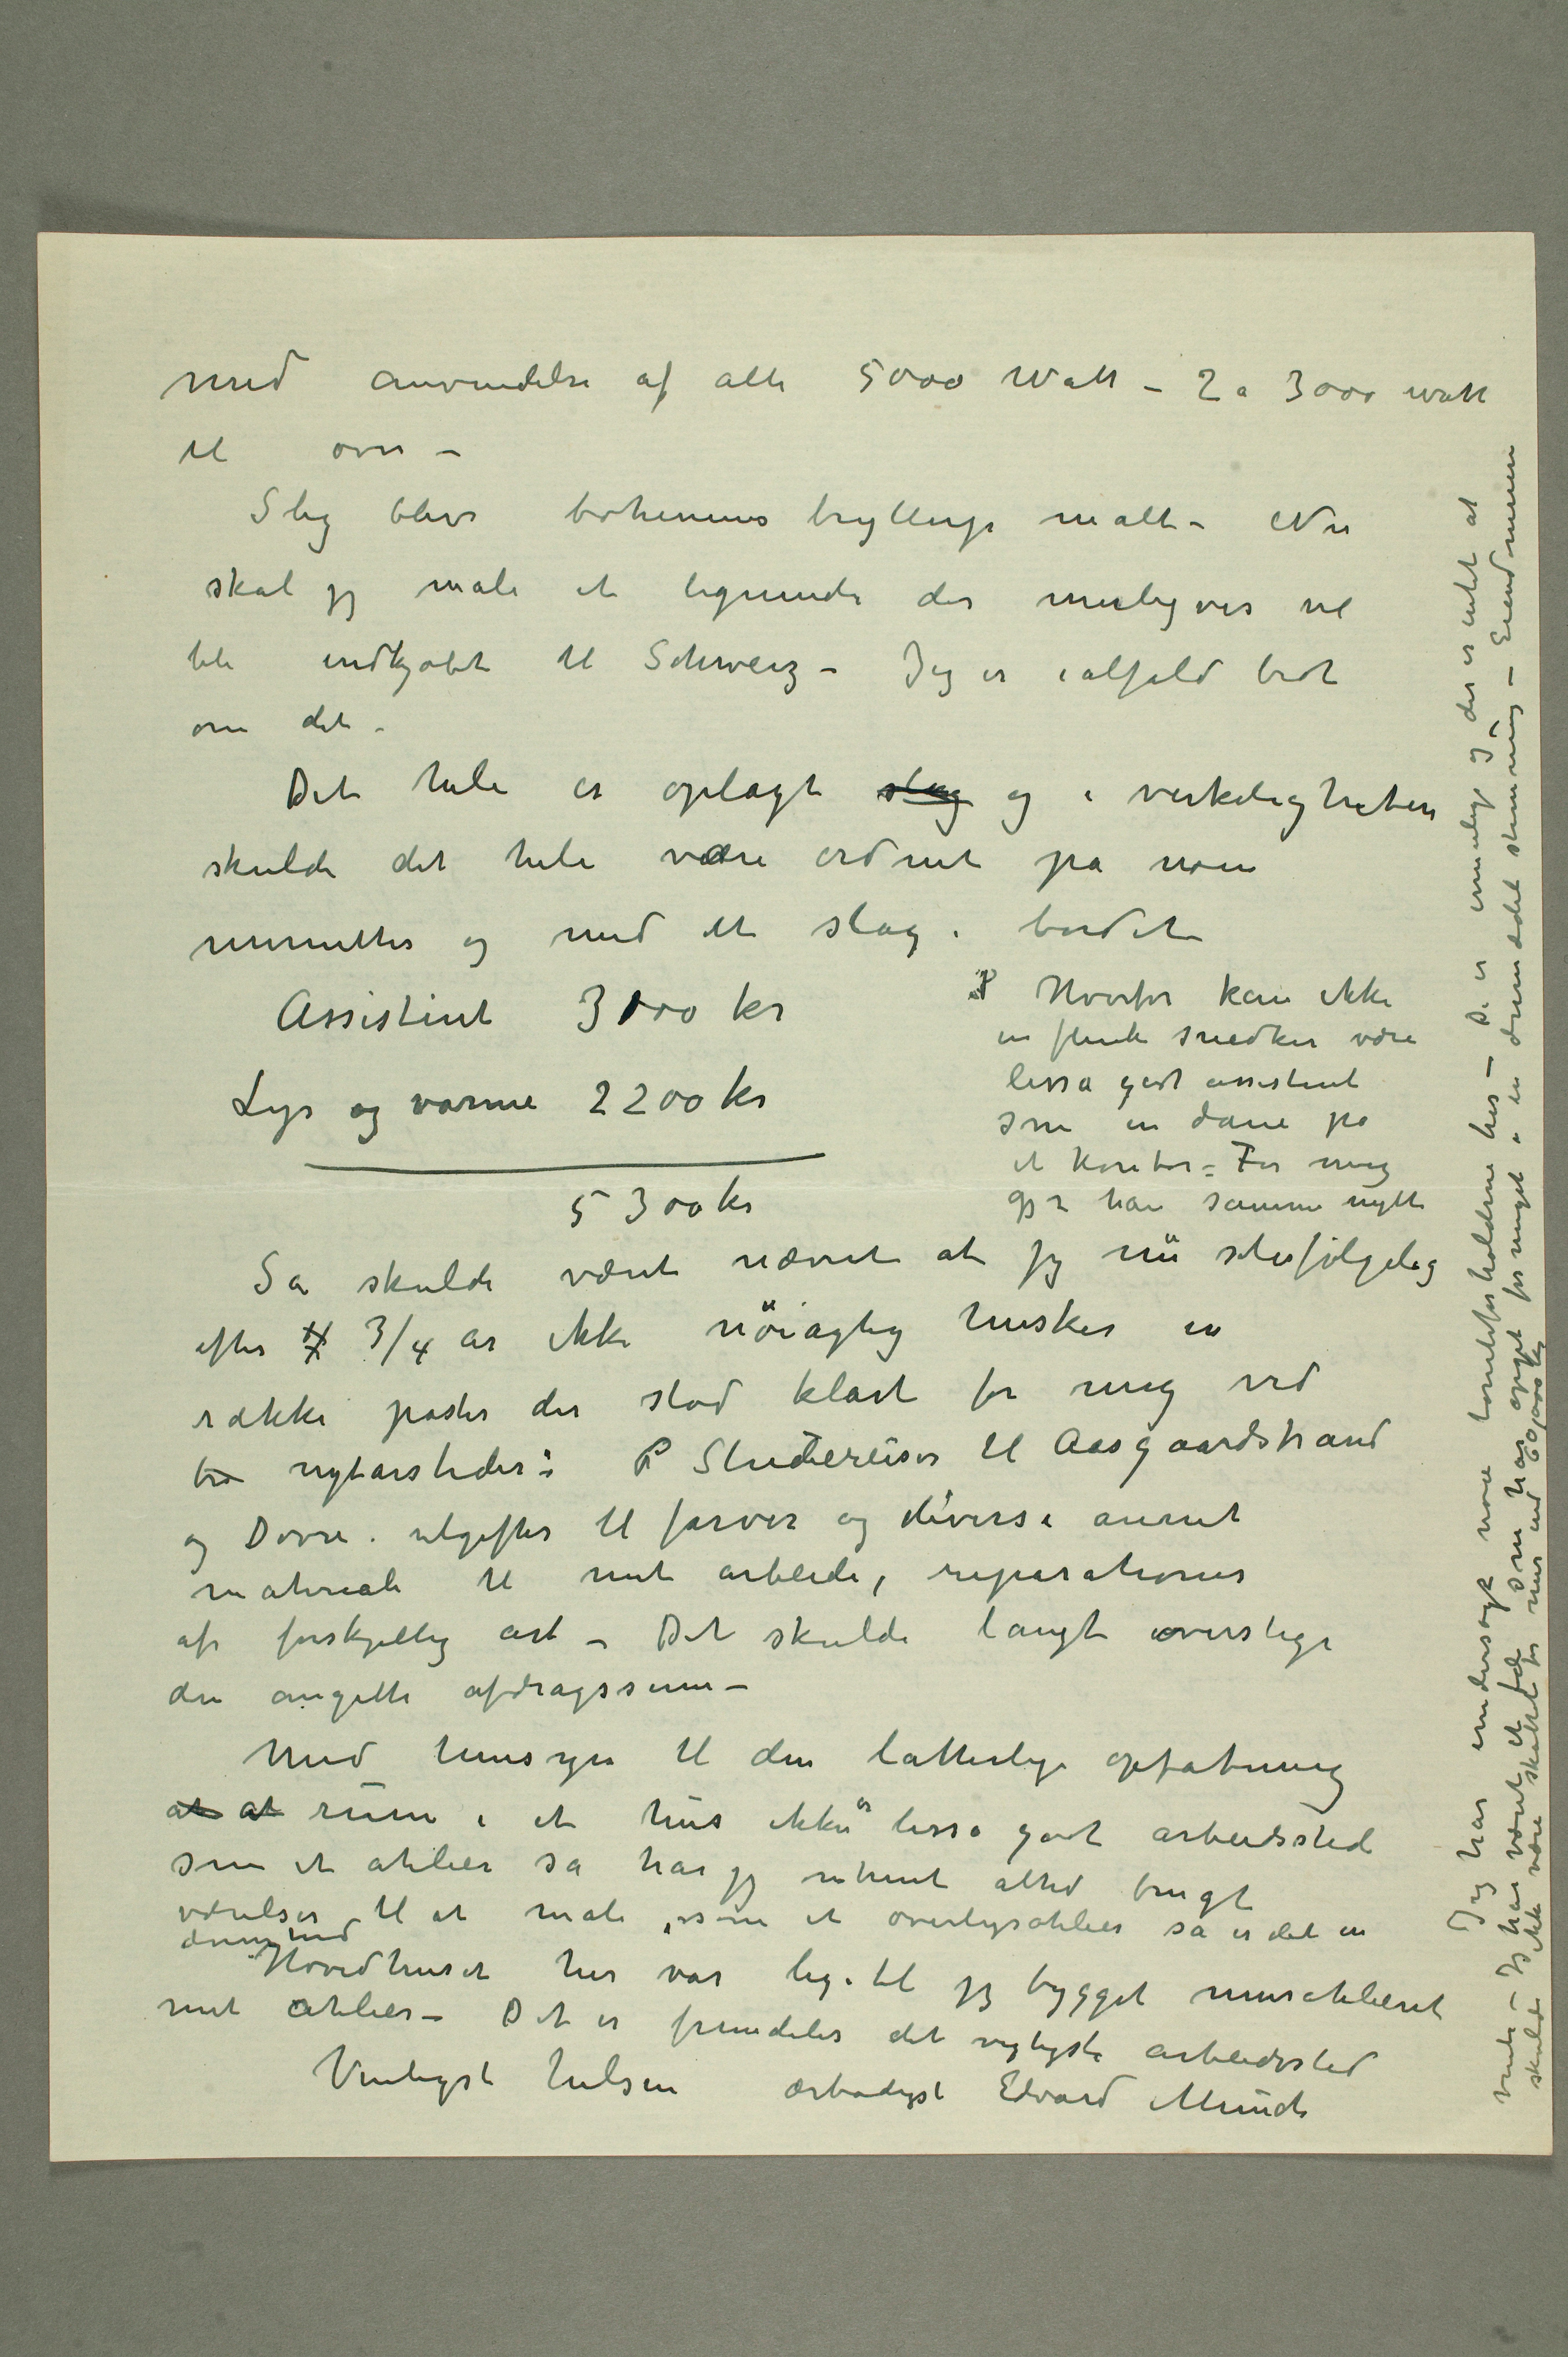 med anvendelse af alle 5000 Watt – 2 a 3000 watt
til ovn –
Slig blev bohemens bryllup malt – Nu
skal jeg male et lignende der muligvis vil
bli indkjøbt til Schweiz – Jeg er ialfald bedt
om det –
Det hele er oplagt slag og i verkeligheten
skulde det hele være ordnet på noen
minutter og med et slag i bordet
Assistent 3100 kr
Lys og varme 2200 kr
5300 kr
Hvorfor kan ikke
en flink snedker være
lissa godt assistent
som en dame på
et kontor = For mig
gjør han samme nytte
Så skulde været nævnt at jeg nu selvfølgelig
efter 3/4 år ikke nöiagtig husker en
række poster der stod klart for mig ved
nytårstider: Studiereiser til Aasgaardstrand
og Dovre. utgifter til farver og diverse annet
materiale til mit arbeide, reparationer
af forskjellig art – Det skulde langt overstige
den angitte afdragssum –
Med hensyn til den latterlige opfatning
at at rum i et hus ikke er lissa godt arbeidssted
som et atelier så har jeg altid brugt
værelser til at male, som et overlysatelier så er det en
Hovedhuset her var lige til jeg bygget muratelieret
mit atelier – Det er fremdeles det vigtigste arbeidssted
Venligst hilsen ærbødigst Edvard Munch
Jeg har undersøgt mine tomteforholdene her – De er umulige og der er intet at
vente – Jeg har været et fæ som har oppet for meget i en drømmedel stemning – Eiendommen
skulde ikke være skattet for mer end 60,000 kr